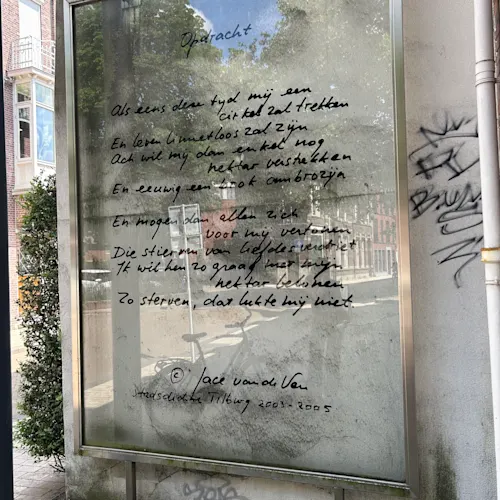 Opdracht
Als eens deze tyd mij een
cirkel zal trekken
En leven limietloos zal zijn
Ach wil my dan enkel nog
nektar verstrekken
En eeuwig een brok ambrozijn
En mogen dan allen zich
voor my vertonen
Die stierven van liefdesverdriet
Ik wil hen zo graag met mijn
nektar belonen
Zo sterven, dat lukte mij niet.
© Jace van de Ven
Stadsdichter Tilburg 2003-2005